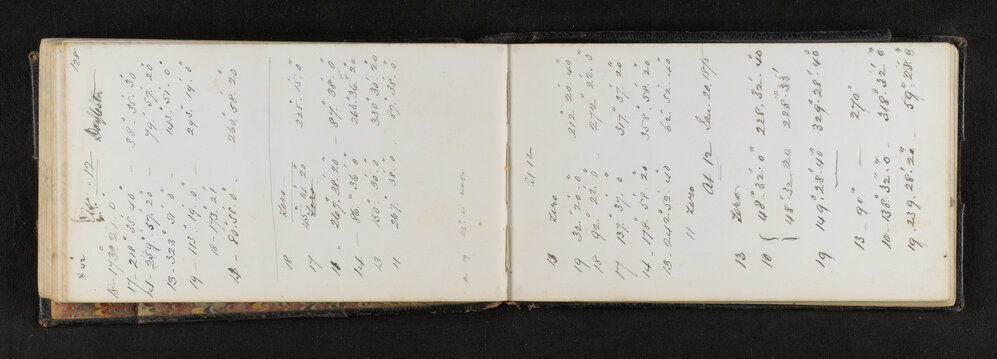 128
12
18 - 173° 21' 0"
17 - 218° 35' 40" - 38° 35' 30"
14 - 259° 57' 20" - 79° 57' 20"
13 - 323° 51' 0" - 143° 51' 0"
19 - 113° 19' 0" - 293° 19' 0"
18 - 173° 21'
14 - 80° 58' 0" - 260° 58' 20
18 zero
17 45° 14' 20 225° 15' 0"
zero
- 267° 38' 20 - 87° 38' 0"
14 - 86° 36' 0 266° 36' 20
13 150° 30' 0 330° 30' 20
11 267° 38' 0 - 87° 38' 0"
21 12
zero
19 32° 20' 0" 212° 20' 40"
18 92° 22' 0" - 272° 22' 0"
17 137° 37' 0 317° 37' 20"
14 - 178° 58' 20 358° 58' 20
13 - 242° 52' 40 62° 52' 40
11 zero
At 12 Jan. 20. 1875
13 zero
10 48° 32' 0" 228° 32' 40"
48° 32' 20 228° 33'
19 149° 28' 40" 329° 28' 40"
13 - 90° 270°
10 - 138° 32' 0" - 318° 32' 0"
19 239° 28' 20" - 59° 28' 0